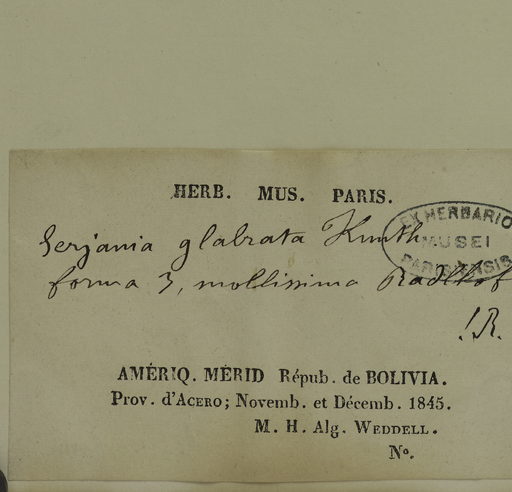 HERB. MUS. PARIS.
EX HERBARIO
MUSEI
PARISIENSIS
Serjania glabrata Kunth
forma 3, mollissima Radlkof
!R.
AMÉRIQ. MÉRID Répub. de BOLIVIA.
Prov. d'ACERO; Novemb. et Décemb. 1845.
M. H. Alg. WEDDELL.
No.